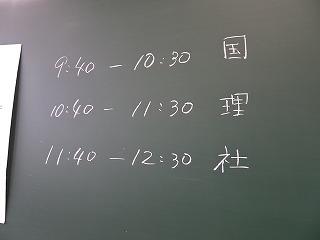 9:40 – 10:30 国
10:40 – 11:30 理
11:40 – 12:30 社